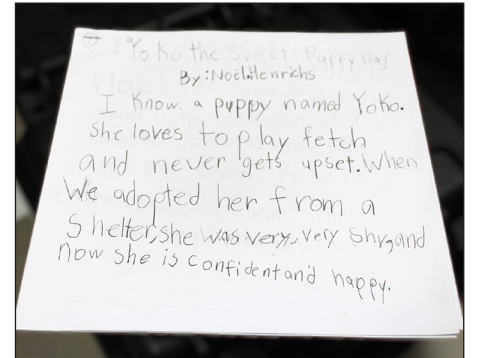 Yoko the Sweet Puppy Dog
By: Noël Henrichs
I know a puppy named Yoko.
She loves to play fetch
and never gets upset. When
we adopted her from a
Shelter, she was very, very shy, and
now she is confident and happy.